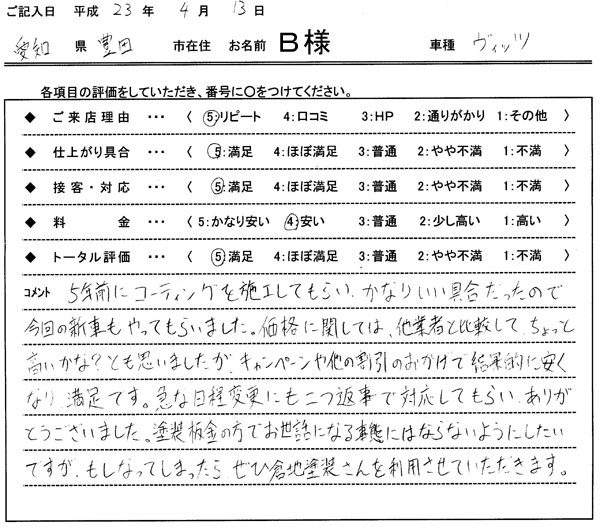 ご記入日 平成 23 年 4 月 13 日
愛知 県 豊田 市在住 お名前 B様 車種 ヴィッツ
各項目の評価をしていただき、番号に○をつけてください。
◆ ご来店理由 ・・・ 〈 5:リピート 4:口コミ 3:HP 2:通りがかり 1:その他 〉
◆ 仕上がり具合 ・・・ 〈 5:満足 4:ほぼ満足 3:普通 2:やや不満 1:不満 〉
◆ 接客・対応 ・・・ 〈 5:満足 4:ほぼ満足 3:普通 2:やや不満 1:不満 〉
◆ 料金 ・・・ 〈 5:かなり安い 4:安い 3:普通 2:少し高い 1:高い 〉
◆ トータル評価 ・・・ 〈 5:満足 4:ほぼ満足 3:普通 2:やや不満 1:不満 〉
コメント 5年前にコーティングを施工してもらい、かなりいい具合だったので
今回の新車もやってもらいました。価格に関しては、他業者と比較して、ちょっと
高いかな?とも思いましたが、キャンペーンや他の割引のおかげで結果的に安く
なり満足です。急な日程変更にも二つ返事で対応してもらい、ありが
とうございました。塗装板金の方でお世話になる事態にはならないようにしたい
ですが、もしなってしまったら、ぜひ倉地塗装さんを利用させていただきます。